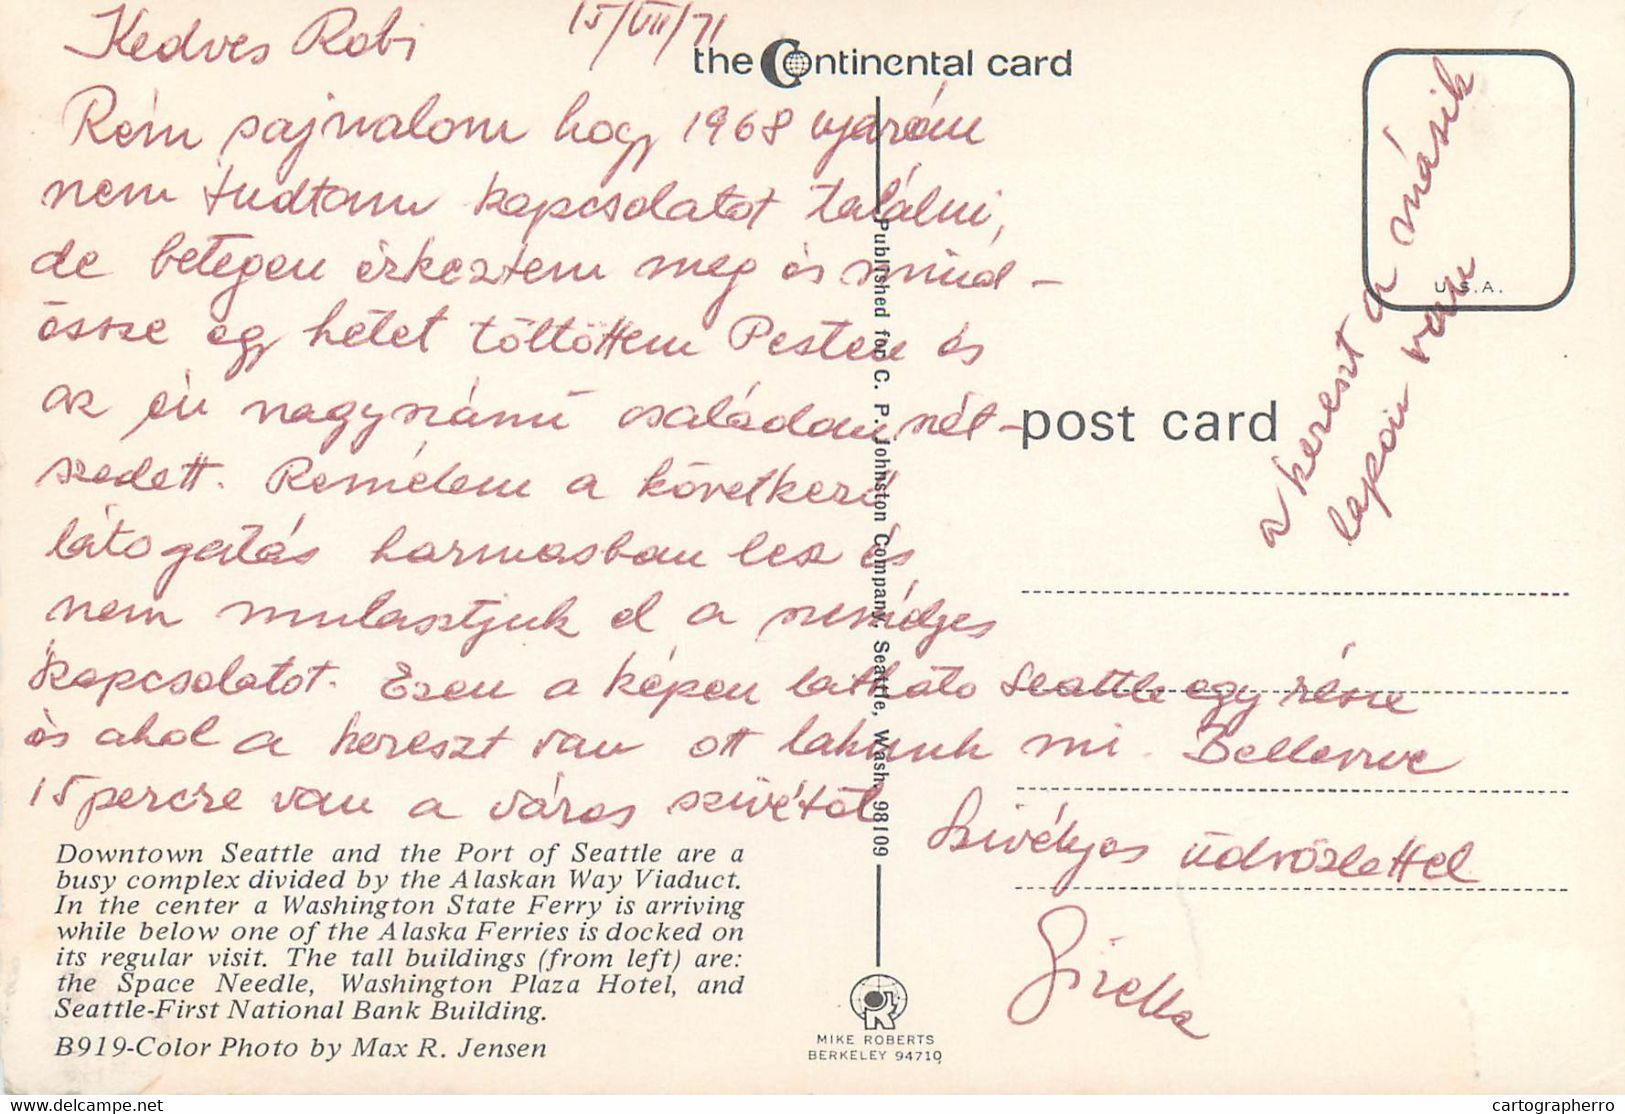 15/VII/71
Kedves Robi
the Continental card
Rém sajnalom hogy 1968 nyarán
nem tudtam kapcsolatot találni,
de betegen érkeztem meg és mind-
össze egy hétet töltöttem Pesten és
az én nagyszámú családom szét-
szedett. Remélem a következő
látogatás harmasban lesz és
nem mulasztjuk el a személyes
kapcsolatot. Ezen a képen latható Seattle egy része
és ahol a kereszt van ott lakunk mi. Bellevue
15 percre van a város szivétöl
Szivélyes üdvözlettel
Gizella
a kereszt a másik
lapon van
U.S.A.
post card
Published for C. P. Johnston Company, Seattle, Wash. 98109
Downtown Seattle and the Port of Seattle are a
busy complex divided by the Alaskan Way Viaduct.
In the center a Washington State Ferry is arriving
while below one of the Alaska Ferries is docked on
its regular visit. The tall buildings (from left) are:
the Space Needle, Washington Plaza Hotel, and
Seattle-First National Bank Building.
B919-Color Photo by Max R. Jensen
MIKE ROBERTS
BERKELEY 94710
www.delcampe.net
cartographerro